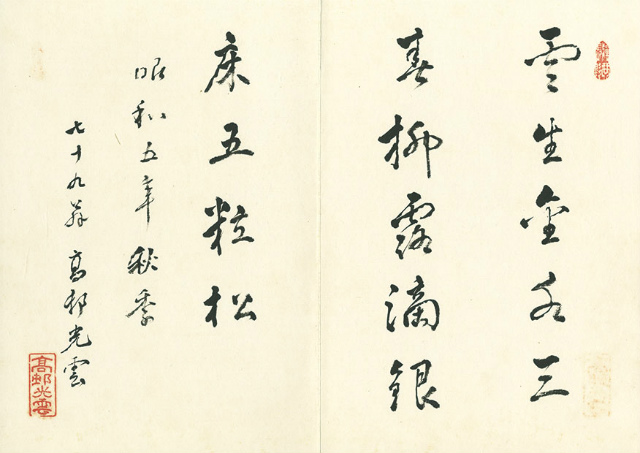 雲生金谷三
春柳露滴銀
床五粒松
昭和五年秋季
七十九翁 高邨光雲
高邨光雲